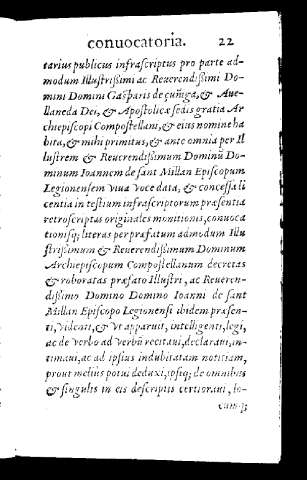 conuocatoria. 22
tarius publicus infrascriptus pro parte ad-
modum Illustrißimi ac Reuerendißimi Do-
mini Domini Gasparis de çuñiga, & Aue-
llaneda Dei, & Apostolicæ sedis gratia Ar
chiepiscopi Compostellani, & eius nomine ha
bita, & mihi primitus, & ante omnia per Il
lustrem & Reuerendißimum Dominũ Do-
minum Ioannem de sant Millan Episcopum
Legionensem viua voce data, & concessa li
centia in testium infrascriptorum præsentia
retroscriptas originales monitionis, conuoca
tionisq; literas per præfatum admodum Illu
strißimum & Reuerendißimum Dominum
Archiepiscopum Compostellanum decretas
& roboratas præfato Illustri, ac Reueren-
dißimo Domino Domino Ioanni de sant
Millan Episcopo Legionensi ibidem præsen-
ti, videnti, & vt apparuit, intelligenti, legi,
ac de verbo ad verbũ recitaui, declaraui, in-
timaui, ac ad ipsius indubitatam notitiam,
prout melius potui deduxi, ipsiq; de omnibus
& singulis in eis descriptis certioraui, lo-
cum q;